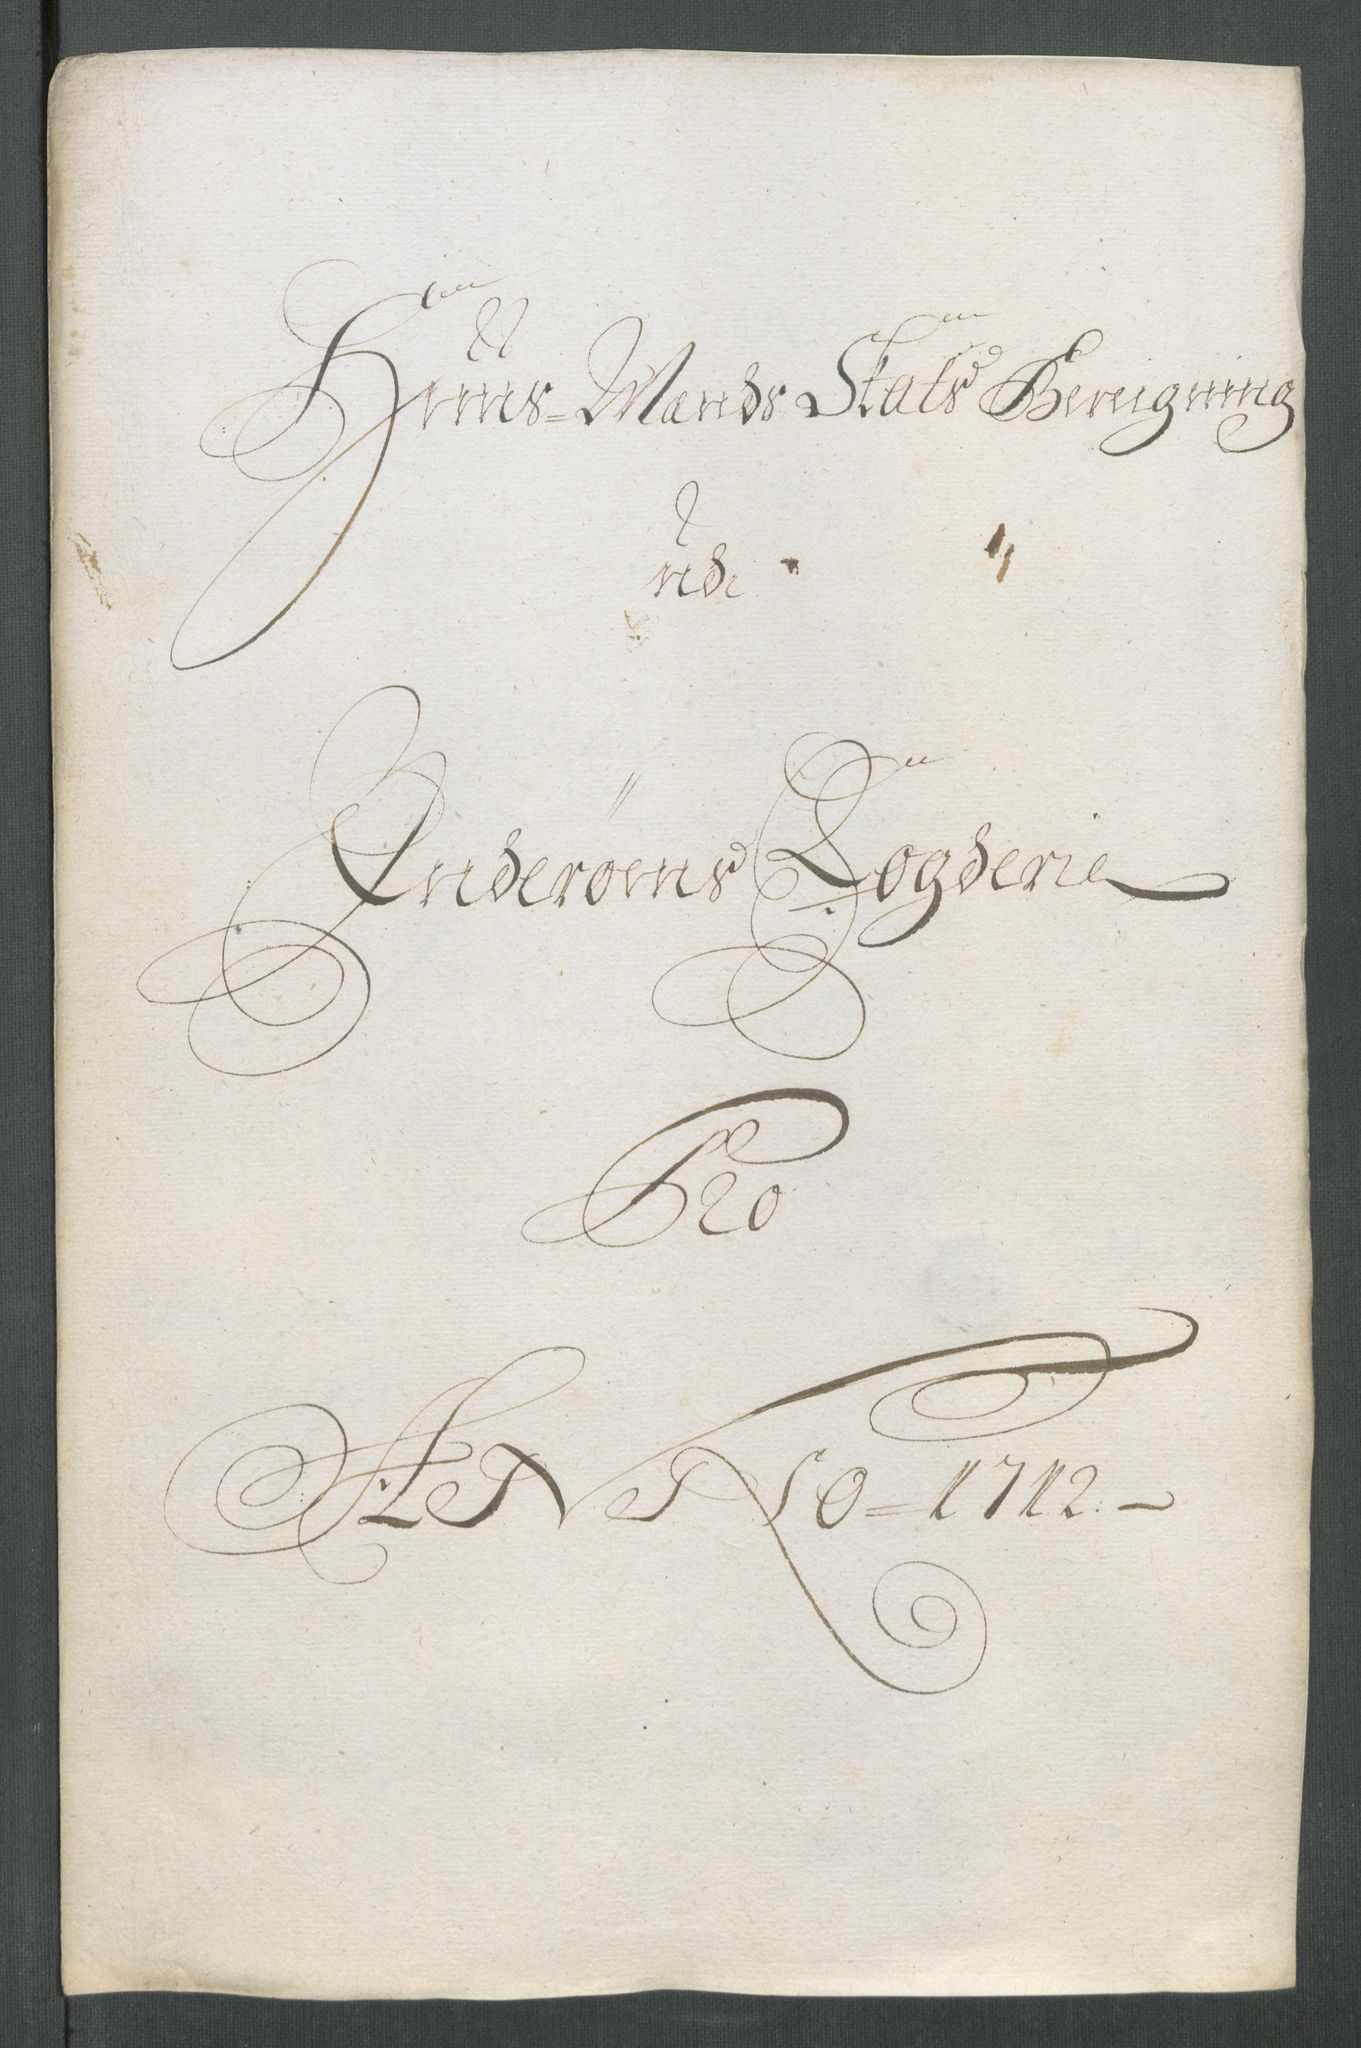 Huus-Mands Skats Bereigning
udi
Inderøens Fogderie
Pro
ANNO = 1712.